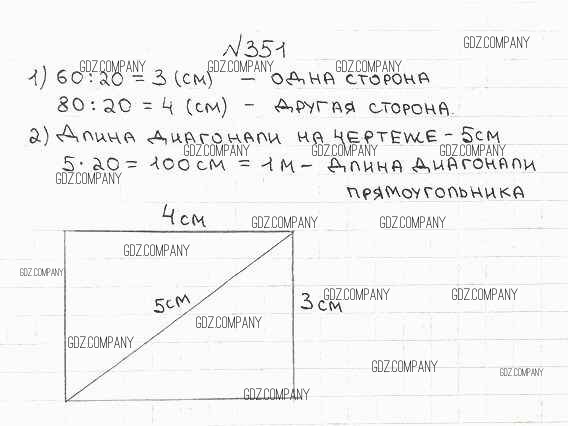 №351
GDZ.COMPANY
GDZ.COMPANY GDZ.COMPANY GDZ.COMPANY
1) 60:20 = 3 (см) – одна сторона
80:20 = 4 (см) – другая сторона.
2) Длина диагонали на чертеже – 5см
GDZ.COMPANY GDZ.COMPANY GDZ.COMPANY
5·20 = 100см = 1м – длина диагонали
GDZ.COMPANY
прямоугольника
4см
GDZ.COMPANY GDZ.COMPANY
GDZ.COMPANY
GDZ.COMPANY
5см
3см
GDZ.COMPANY GDZ.COMPANY
GDZ.COMPANY
GDZ.COMPANY
GDZ.COMPANY
GDZ.COMPANY
GDZ.COMPANY